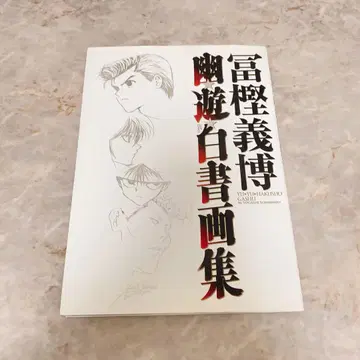 冨樫義博
幽遊白書画集
YU☆YU☆HAKUSHO
GASHU